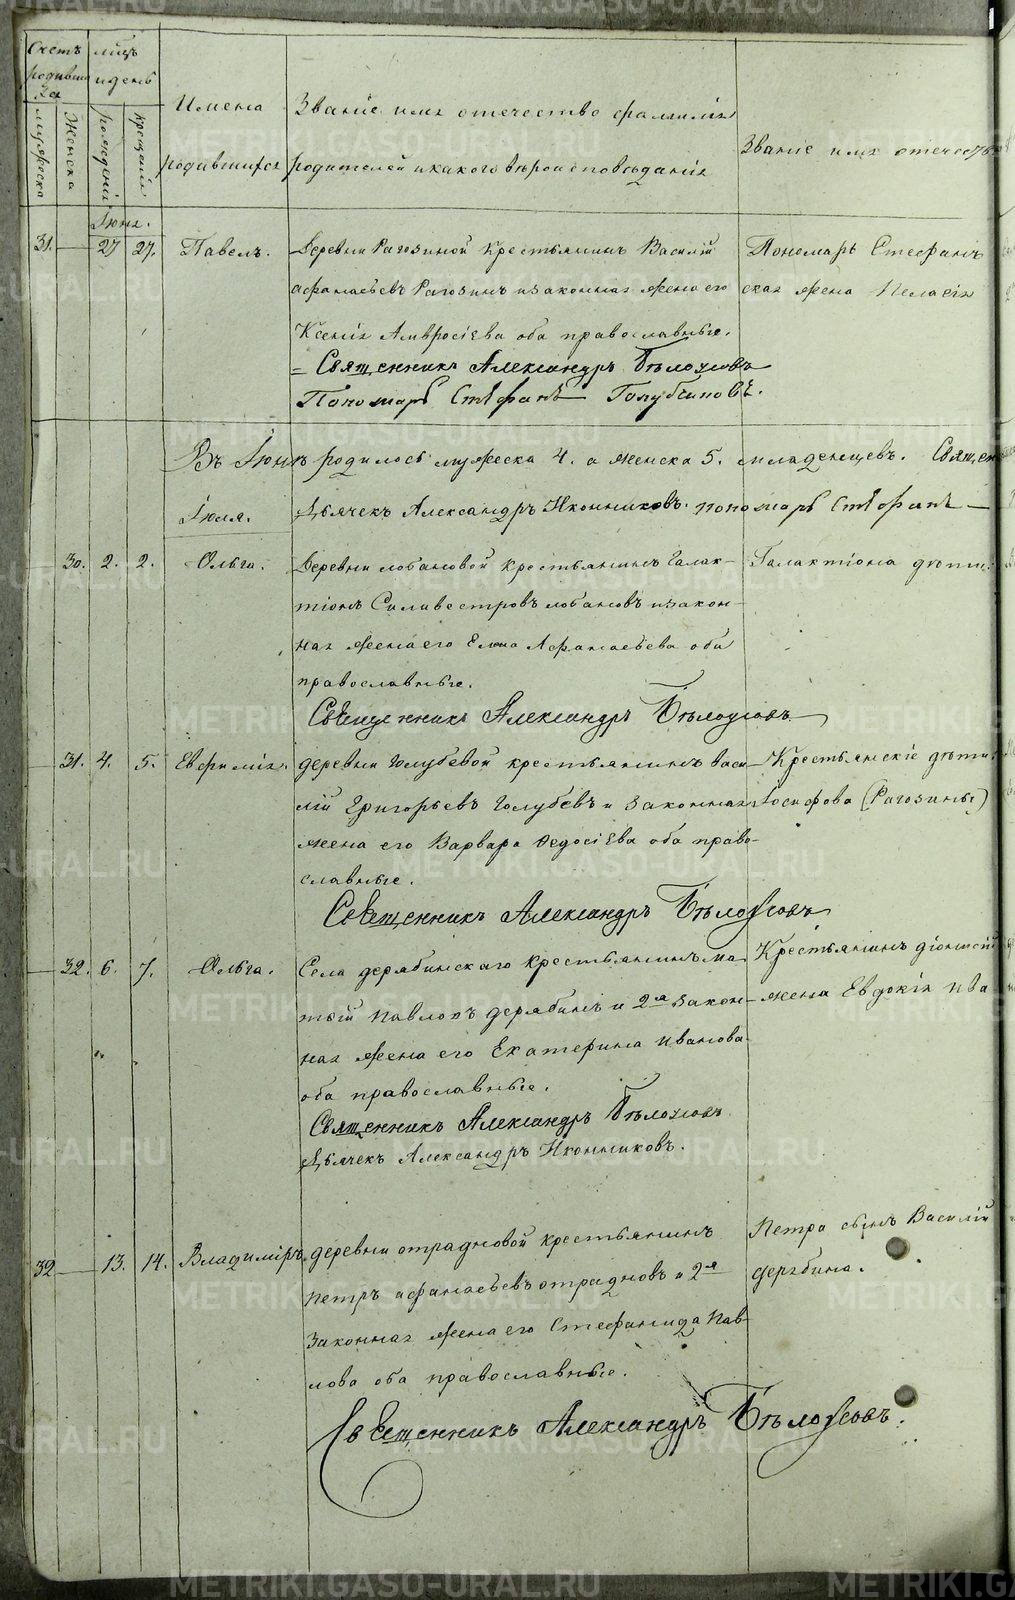 Счетъ родившихся
лицъ и день
Имена родившихся
Званіе имя отечество фамилія
родителей и какого вѣроисповѣданія
Званіе имя отечес
мужеска
женска
рожденія
крещенія
Іюня.
31. — 27 27. Павелъ. Деревни Рагозиной крестьянинъ Василій Пономарь Стефанъ
афанасьевъ Рагозинъ и законная жена его ская жена Пелагія
Ксенія Амвросіева оба православные.
Священникъ Александръ Бѣлоусовъ
Пономарь Стефанъ Голубчиковъ.
Въ Іюнѣ родилось мужеска 4. а женска 5. младенцевъ. Священ
Дьячекъ Александръ Иконниковъ. пономарь Стефанъ
Іюля.
— 30. 2. 2. Ольга. Деревни лобановой крестьянинъ Галак- Галактіона
тіонъ Силивестровъ лобановъ и закон-
ная жена его Елена Афанасьева оба
православные.
Священникъ Александръ Бѣлоусовъ
— 31. 4. 5. Евфимія. деревни Голубевой крестьянинъ васи- Крестьянскіе дѣти
лій Григорьевъ Голубевъ и законная Іосифова (Рагозины)
жена его Варвара Федосіева оба право-
славные.
Священникъ Александръ Бѣлоусовъ
— 32. 6. 7. Ольга. Села дерябинскаго крестьянинъ ма Крестьянинъ діонисій
тѳій Павловъ дерябинъ и 2я закон- жена Евдокія ива
ная жена его Екатерина Иванова
оба православные.
Священникъ Александръ Бѣлоусовъ
Дьячекъ Александръ Иконниковъ.
32 — 13. 14. Владиміръ. деревни отрадновой крестьянинъ Петра сынъ Василій
петръ афанасьевъ отрадновъ и 2я дерябина.
законная жена его Стефанида Пав-
лова оба православные.
Священникъ Александръ Бѣлоусовъ.
METRIKI.GASO-URAL.RU